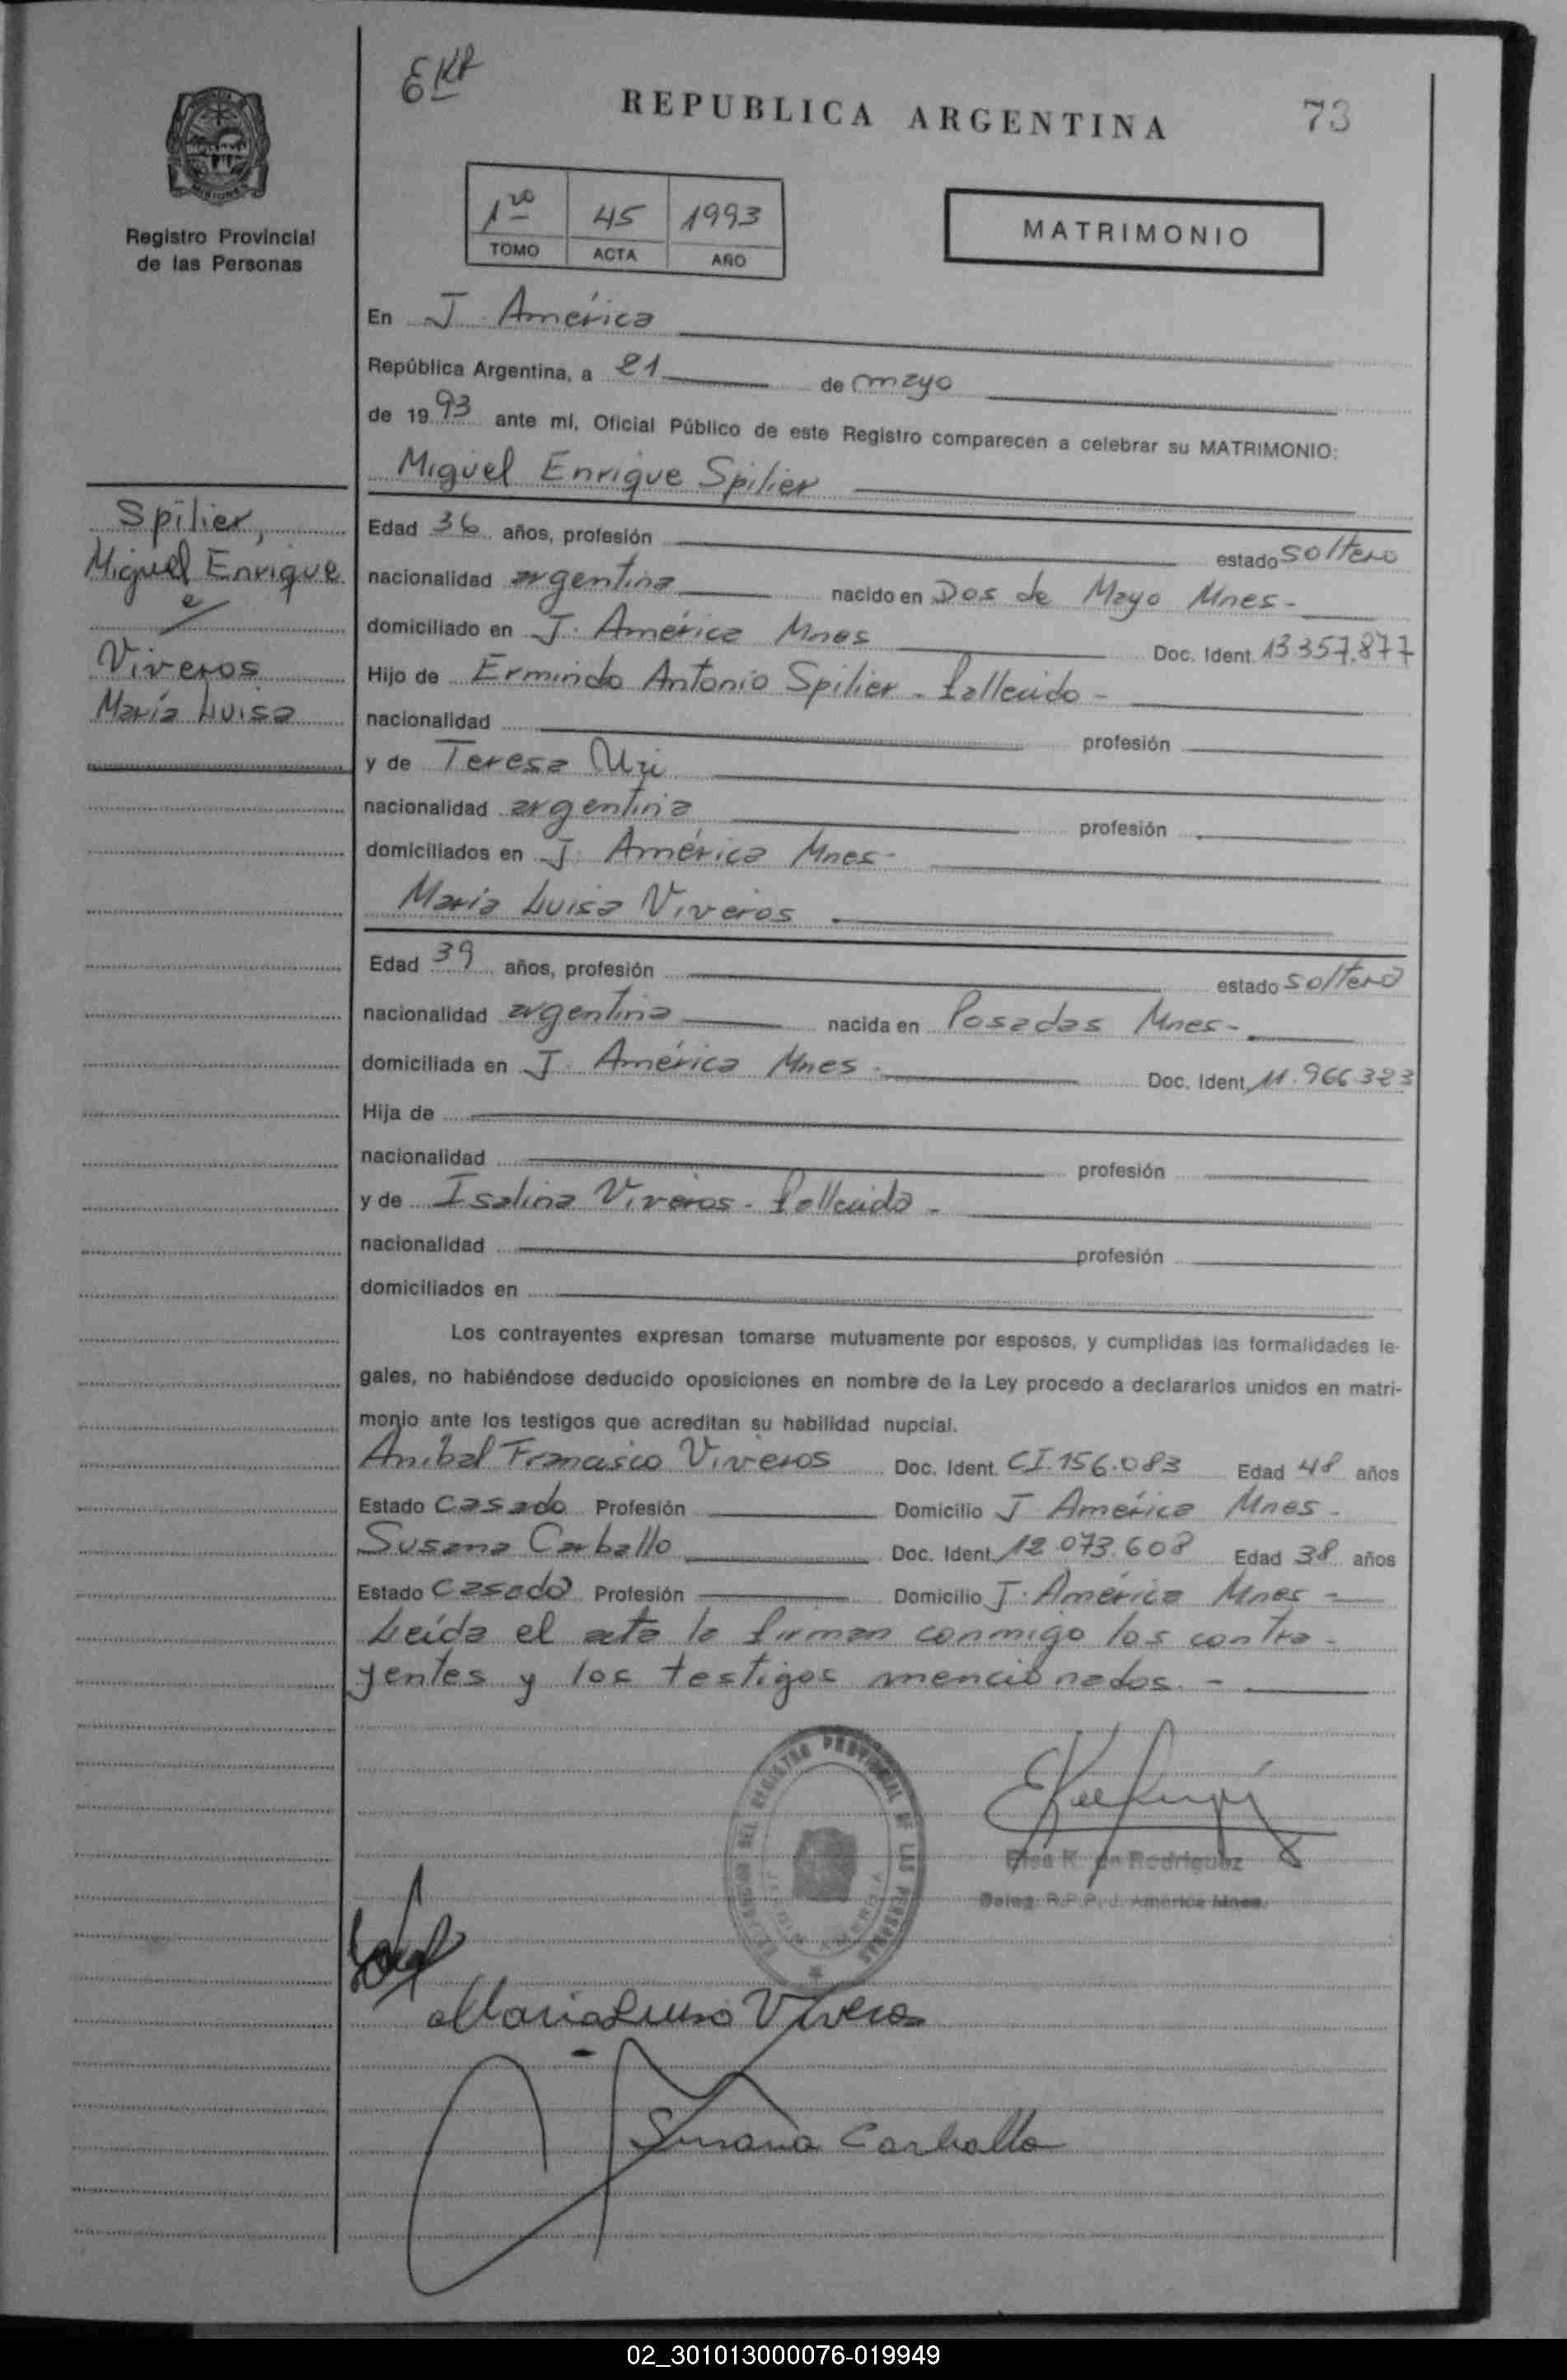 REPUBLICA ARGENTINA
73
MISIONES
Registro Provincial
de las Personas
1ro 45 1993
TOMO ACTA AÑO
MATRIMONIO
En J. América
República Argentina, a 21 de mayo
de 1993 ante mí, Oficial Público de este Registro comparecen a celebrar su MATRIMONIO:
Miguel Enrique Spilier
Spilier,
Miguel Enrique
e/
Viveros
María Luisa
Edad 36 años, profesión estado soltero
nacionalidad argentina nacido en Dos de Mayo Mnes-
domiciliado en J. América Mnes Doc. Ident. 13.357.877
Hijo de Ermindo Antonio Spilier - fallecido -
nacionalidad profesión
y de Teresa
nacionalidad argentina profesión
domiciliados en J. América Mnes-
María Luisa Viveros
Edad 39 años, profesión estado soltera
nacionalidad argentina nacida en Posadas Mnes-
domiciliada en J. América Mnes. Doc. Ident. 11.966.323
Hija de
nacionalidad profesión
y de Isalina Viveros - fallecida -
nacionalidad profesión
domiciliados en
Los contrayentes expresan tomarse mutuamente por esposos, y cumplidas las formalidades le-
gales, no habiéndose deducido oposiciones en nombre de la Ley procedo a declararlos unidos en matri-
monio ante los testigos que acreditan su habilidad nupcial.
Anibal Francisco Viveros Doc. Ident. CI.156.083 Edad 48 años
Estado Casado Profesión Domicilio J América Mnes-
Susana Carballo Doc. Ident. 12.073.608 Edad 38 años
Estado Casada Profesión Domicilio J. América Mnes-
Leída el acta la firman conmigo los contra-
yentes y los testigos mencionados. -
DEL REGISTRO PROVINCIAL DE LAS PERSONAS
Elsa K. de Rodriguez
Deleg. R.P.P. J. América Mnes.
Maria Luisa Viveros
Susana Carballo
02_301013000076-019949